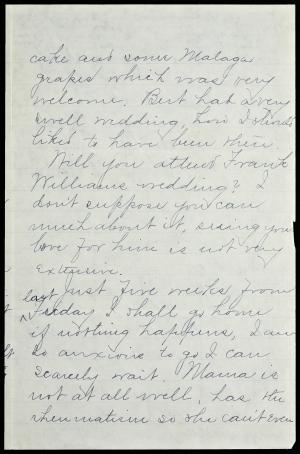 cake and some Malaga
grapes which was very
welcome. Bert had a very
swell wedding, how I should
liked to have been there.
Will you attend Frank
Williams wedding? I
don't suppose you care
much about it, seeing your
love for him is not very
extensive.
Just five weeks from
last
Friday I shall go home
if nothing happens, I am
so anxious to go I can
scarcely wait. Mama is
not at all well, has the
rheumatism so she can't even